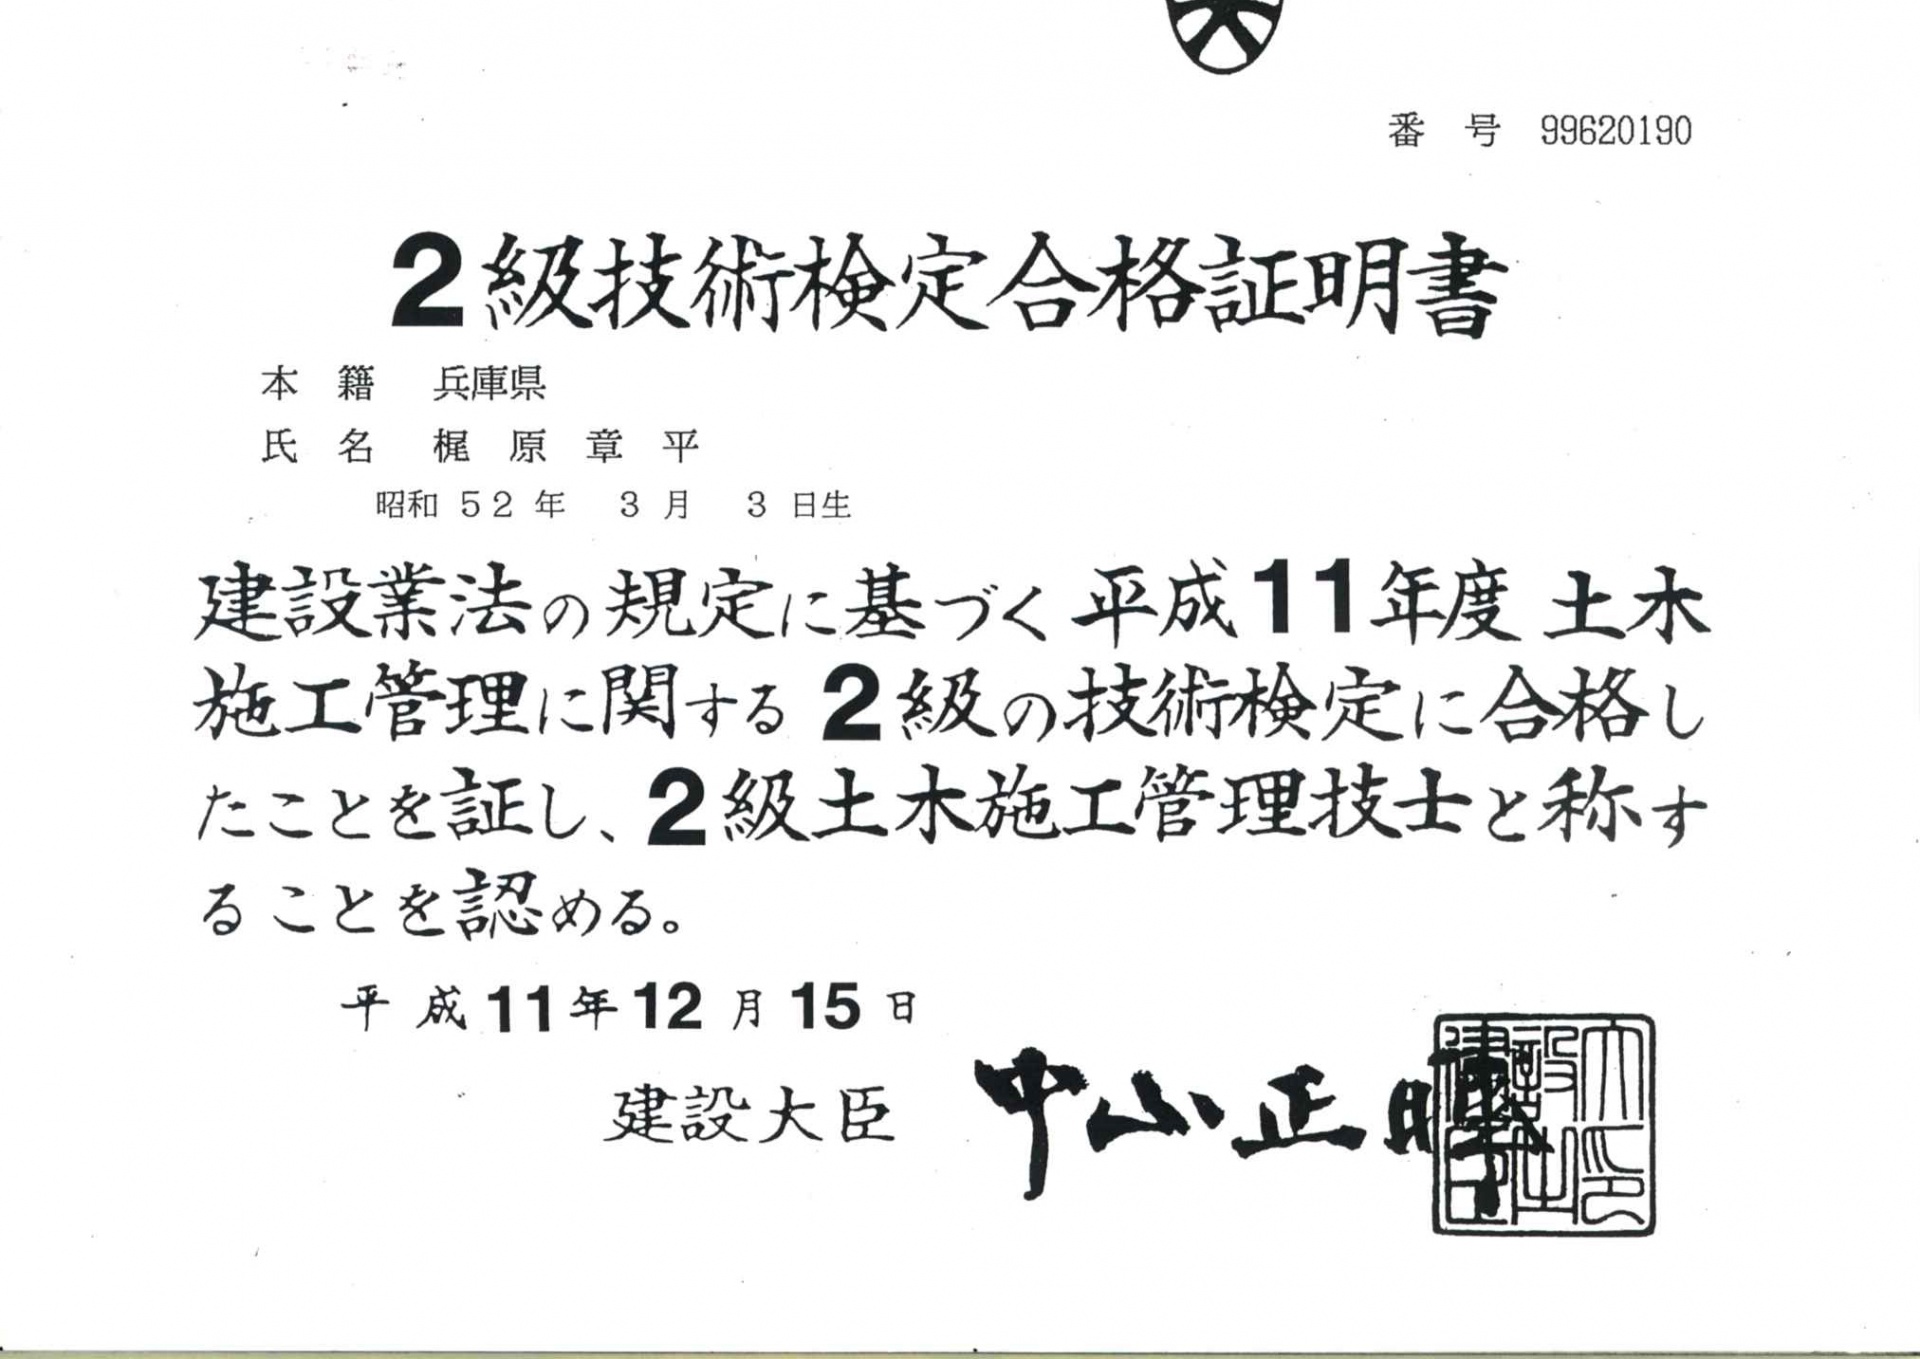 番 号 99620190
2級技術検定合格証明書
本 籍 兵庫県
氏 名 梶 原 章 平
昭和 52 年 3 月 3 日生
建設業法の規定に基づく平成11年度 土木
施工管理に関する2級の技術検定に合格し
たことを証し、2級土木施工管理技士と称す
ることを認める。
平 成 11 年 12 月 15 日
建設大臣 中山正暉